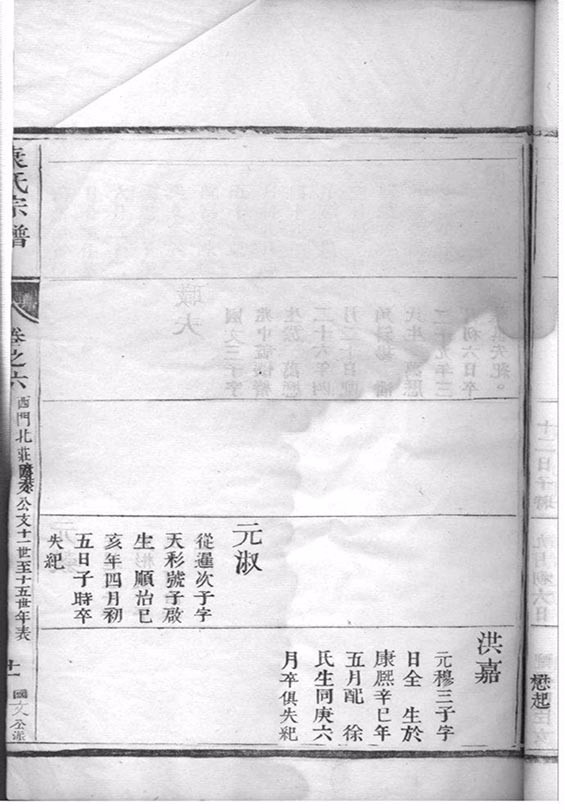 懋起
洪嘉
元穆三子字
日全 生於
康熙辛巳年
五月配 徐
氏生同庚六
月卒俱失紀
元淑
從暹次子字
天彩號子啟
生 順治己
亥年四月初
五日子時卒
失紀
袁氏宗譜
卷之六
西門北莊
公支十一世至十五世年表
十一
國文公派